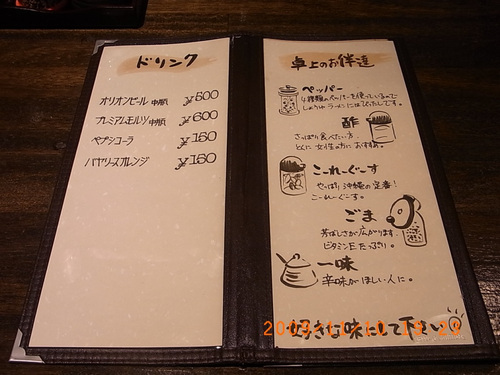 ドリンク
オリオンビール 中瓶 ¥500
プレミアムモルツ 中瓶 ¥600
ペプシコーラ ¥150
バヤリースオレンジ ¥150
卓上のお伴達
ペッパー
4種類のペッパーを使っているので
しょうゆラーメンにはぴったしです。
酢
さっぱり食べたい方、
とくに女性の方におすすめ。
こーれーぐーす
やっぱり沖縄の定番!
こーれーぐーす。
ごま
芳ばしさが広がります。
ビタミンEたっぷり。
一味
辛味がほしい人に。
好きな味にして下さい